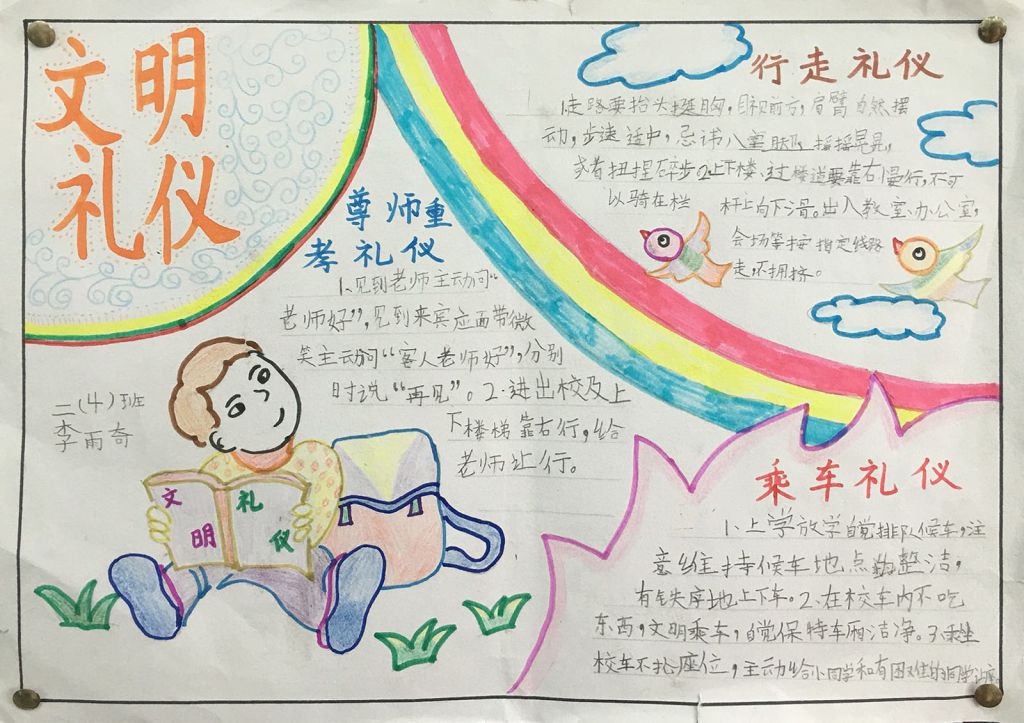 文明
礼仪
尊师重
孝礼仪
1、见到老师主动问“
老师好”，见到来宾应面带微
笑主动问“客人老师好”，分别
时说“再见”。2.进出校及上
下楼梯靠右行，给
老师让行。
二(4)班
李雨奇
文明
礼仪
行走礼仪
1.走路要抬头挺胸，目视前方，肩臂自然摆
动，步速适中，忌讳八字脚，摇摇晃晃，
或者扭捏碎步2.上下楼、过楼道要靠右慢行，不可
以骑在栏杆上向下滑。出入教室办公室，
会场等按指定线路
走，不拥挤。
乘车礼仪
1、上学放学自觉排队候车，注
意维持候车地点的整洁，
有铁序地上下车。2.在校车内不吃
东西，文明乘车，自觉保持车厢洁净。3.乘坐
校车不抢座位，主动给小同学和有困难的同学让座